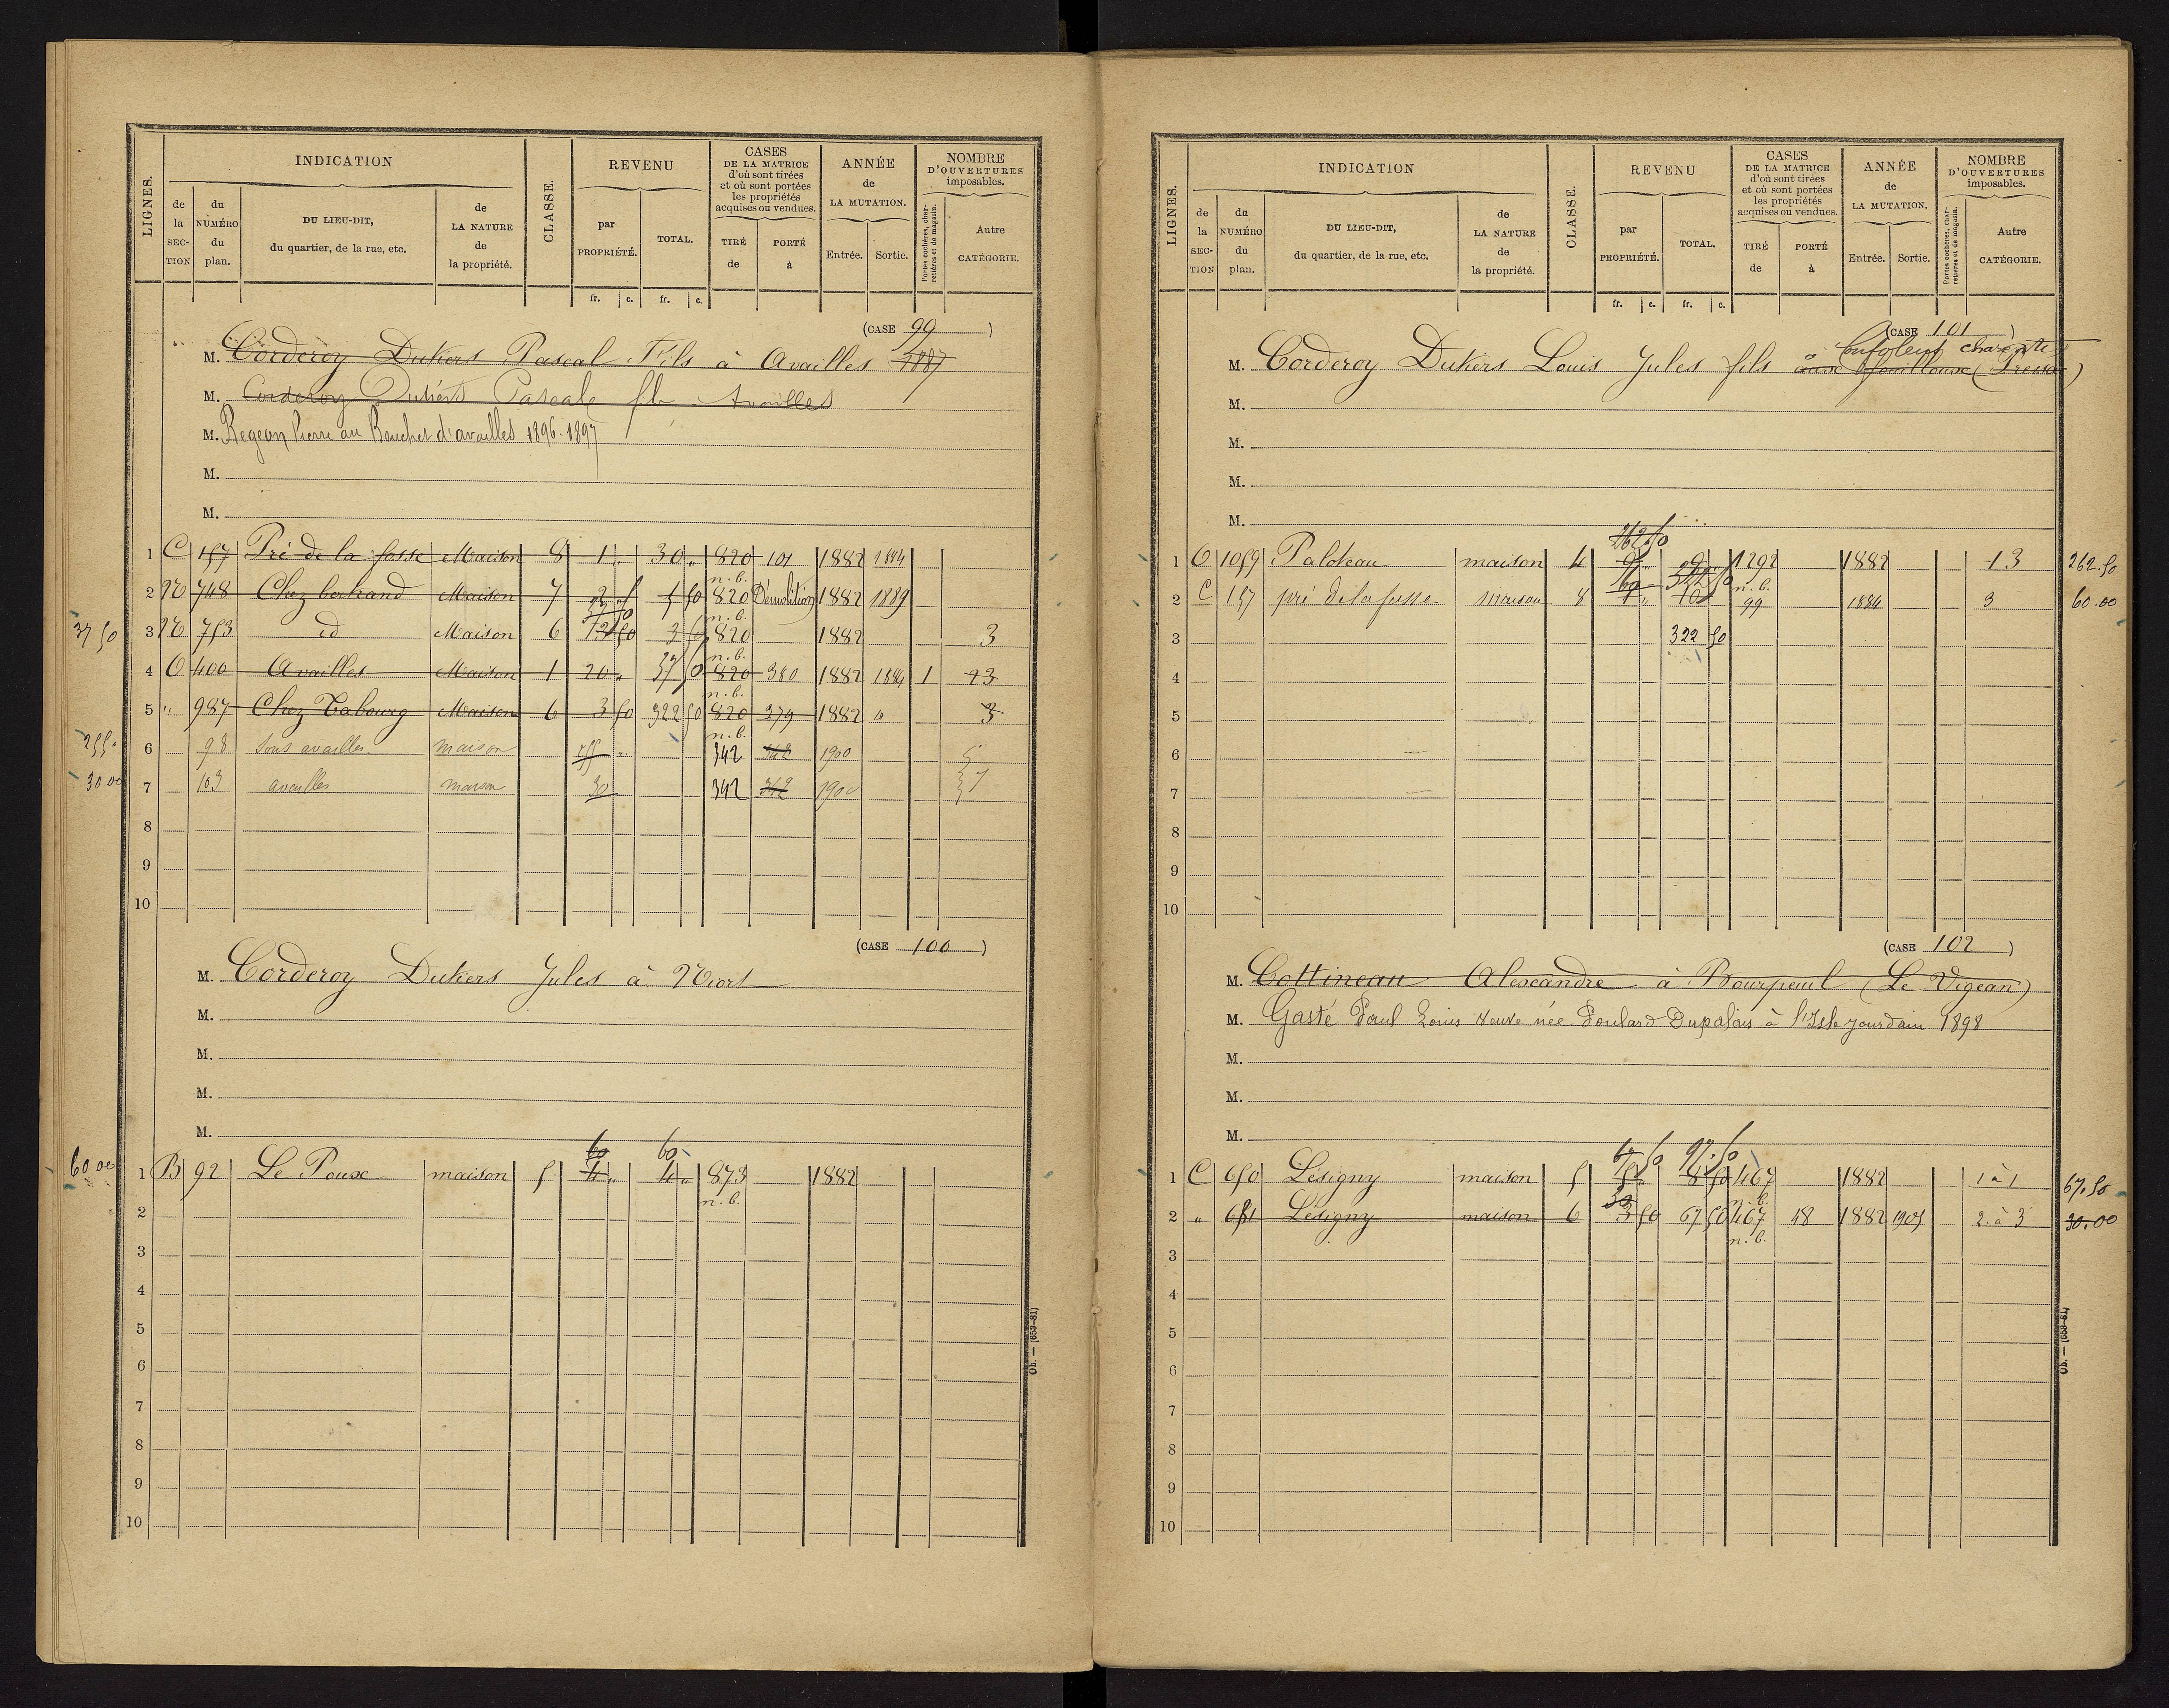 LIGNES.
INDICATION
de la SECTION
du NUMÉRO du plan.
DU LIEU-DIT, du quartier, de la rue, etc.
de LA NATURE de la propriété.
CLASSE.
REVENU
par PROPRIÉTÉ.
TOTAL.
fr. c. fr. c.
CASES DE LA MATRICE d'où sont tirées et où sont portées les propriétés acquises ou vendues.
TIRÉ de
PORTÉ à
ANNÉE de LA MUTATION.
Entrée.
Sortie.
NOMBRE D'OUVERTURES imposables.
Portes cochères, charretières et de magasin.
Autre CATÉGORIE.
(CASE 99)
M. Corderoy Dutiers Pascal Fils à Availles 1887
M. Corderoy Dutiers Pascale fils Availles
M. Regeon Pierre au Rauchet d'availles 1896-1897
M.
M.
1 C 157 Pré de la fosse Maison 8 1 " 30 " 820 n.b. 101 1882 1884
2 748 Chez bertrand Maison 7 820 n.b. Démolition 1882 1889
37 50 3 753 id Maison 6 820 n.b. 1882 3
4 400 Availles Maison 1 20 " 37 50 820 n.b. 380 1882 1884 1 23
5 " 987 Chez Tabourg Maison 6 3 50 322 50 820 n.b. 379 1882 3
255 6 98 sous availles maison 255 " 342 1900 5
30 00 7 103 availles maison 30 342 1900 7
8
9
10
(CASE 100)
M. Corderoy Dutiers Jules à Niort
M.
M.
M.
M.
60 60
60 00 1 B 92 Le Poux maison 5 4 " 4 " 873 n.b. 1882
2
3
4
5
6
7
8
9
10
Ob. — (653-81)
LIGNES.
INDICATION
de la SECTION
du NUMÉRO du plan.
DU LIEU-DIT, du quartier, de la rue, etc.
de LA NATURE de la propriété.
CLASSE.
REVENU
par PROPRIÉTÉ.
TOTAL.
fr. c. fr. c.
CASES DE LA MATRICE d'où sont tirées et où sont portées les propriétés acquises ou vendues.
TIRÉ de
PORTÉ à
ANNÉE de LA MUTATION.
Entrée.
Sortie.
NOMBRE D'OUVERTURES imposables.
Portes cochères, charretières et de magasin.
Autre CATÉGORIE.
(CASE 101)
à Confolens charente
M. Corderoy Dutiers Louis Jules fils (Pressac)
M.
M.
M.
M.
262.50
1 1059 Paloteau maison 4 9 " 9 " 1292 n.b. 1882 13 262.50
2 C 157 pré de la fosse maison 8 1 " 10 99 1884 3 60.00
3 322 50
4
5
6
7
8
9
10
(CASE 102)
M. Cottineau Alexandre à Bourpeuil (Le Vigean)
M. Gasté Paul Louis veuve née Poulard Dupalais à l'Isle Jourdain 1898
M.
M.
M.
67 50 97.50
1 C 650 Lésigny maison 5 8 50 467 n.b. 1882 1 à 1 67.50
2 " 651 Lésigny maison 6 3 50 67 50 467 n.b. 48 1882 1907 2 à 3 30.00
3
4
5
6
7
8
9
10
Ob. — (653-81)